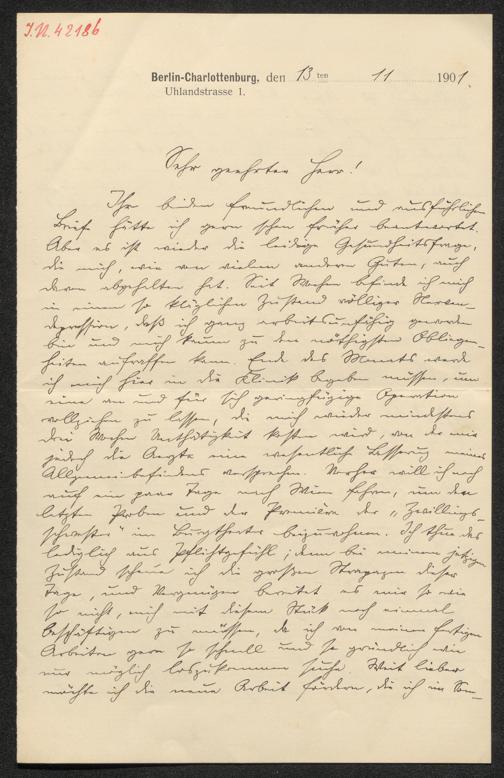 I.N. 42186
Berlin-Charlottenburg, den 13ten 11 1901.
Uhlandstrasse 1.
Sehr geehrter Herr!
Ihre beiden freundlichen und ausführlichen
Briefe hätte ich gern schon früher beantwortet.
Aber es ist wieder die leidige Gesundheitsfrage,
die mich, wie von vielem andern Guten, auch
davon abgehalten hat. Seit Wochen befinde ich mich
in einem so kläglichen Zustand völliger Nerven-
depression, daß ich ganz arbeitsunfähig geworden
bin und mich kaum zu den nöthigsten Obliegen-
heiten aufraffen kann. Ende des Monats werde
ich mich hier in die Klinik begeben müssen, um
eine an und für sich geringfügige Operation
vollziehen zu lassen, die mich wieder mindestens
drei Wochen Unthätigkeit kosten wird, von der mir
jedoch die Aerzte eine wesentliche Besserung meines
Allgemeinbefindens versprechen. Vorher will ich noch
auf ein paar Tage nach Wien fahren, um den
letzten Proben und der Première der „Zwillings-
schwester" im Burgtheater beizuwohnen. Ich thue das
lediglich aus Pflichtgefühl; denn bei meinem jetzigen
Zustand scheue ich die großen Strapazen dieser
Tage, und Vergnügen bereitet es mir so wie
so nicht, mich mit diesem Stück noch einmal
beschäftigen zu müssen, da ich von meinen fertigen
Arbeiten gern so schnell und so gründlich wie
nur möglich loszukommen suche. Weit lieber
möchte ich die neue Arbeit fördern, die ich im Som-